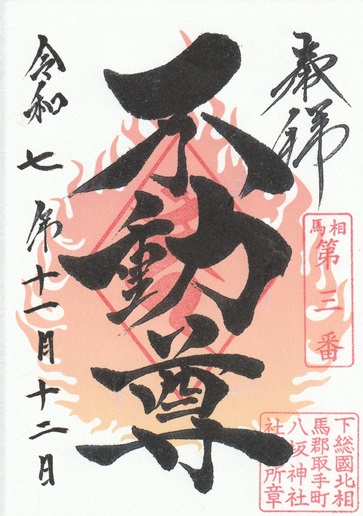 奉拝
相馬
第三番
不動尊
令和七年十一月十二日
下総國北相
馬郡取手町
八坂神社
社務所章